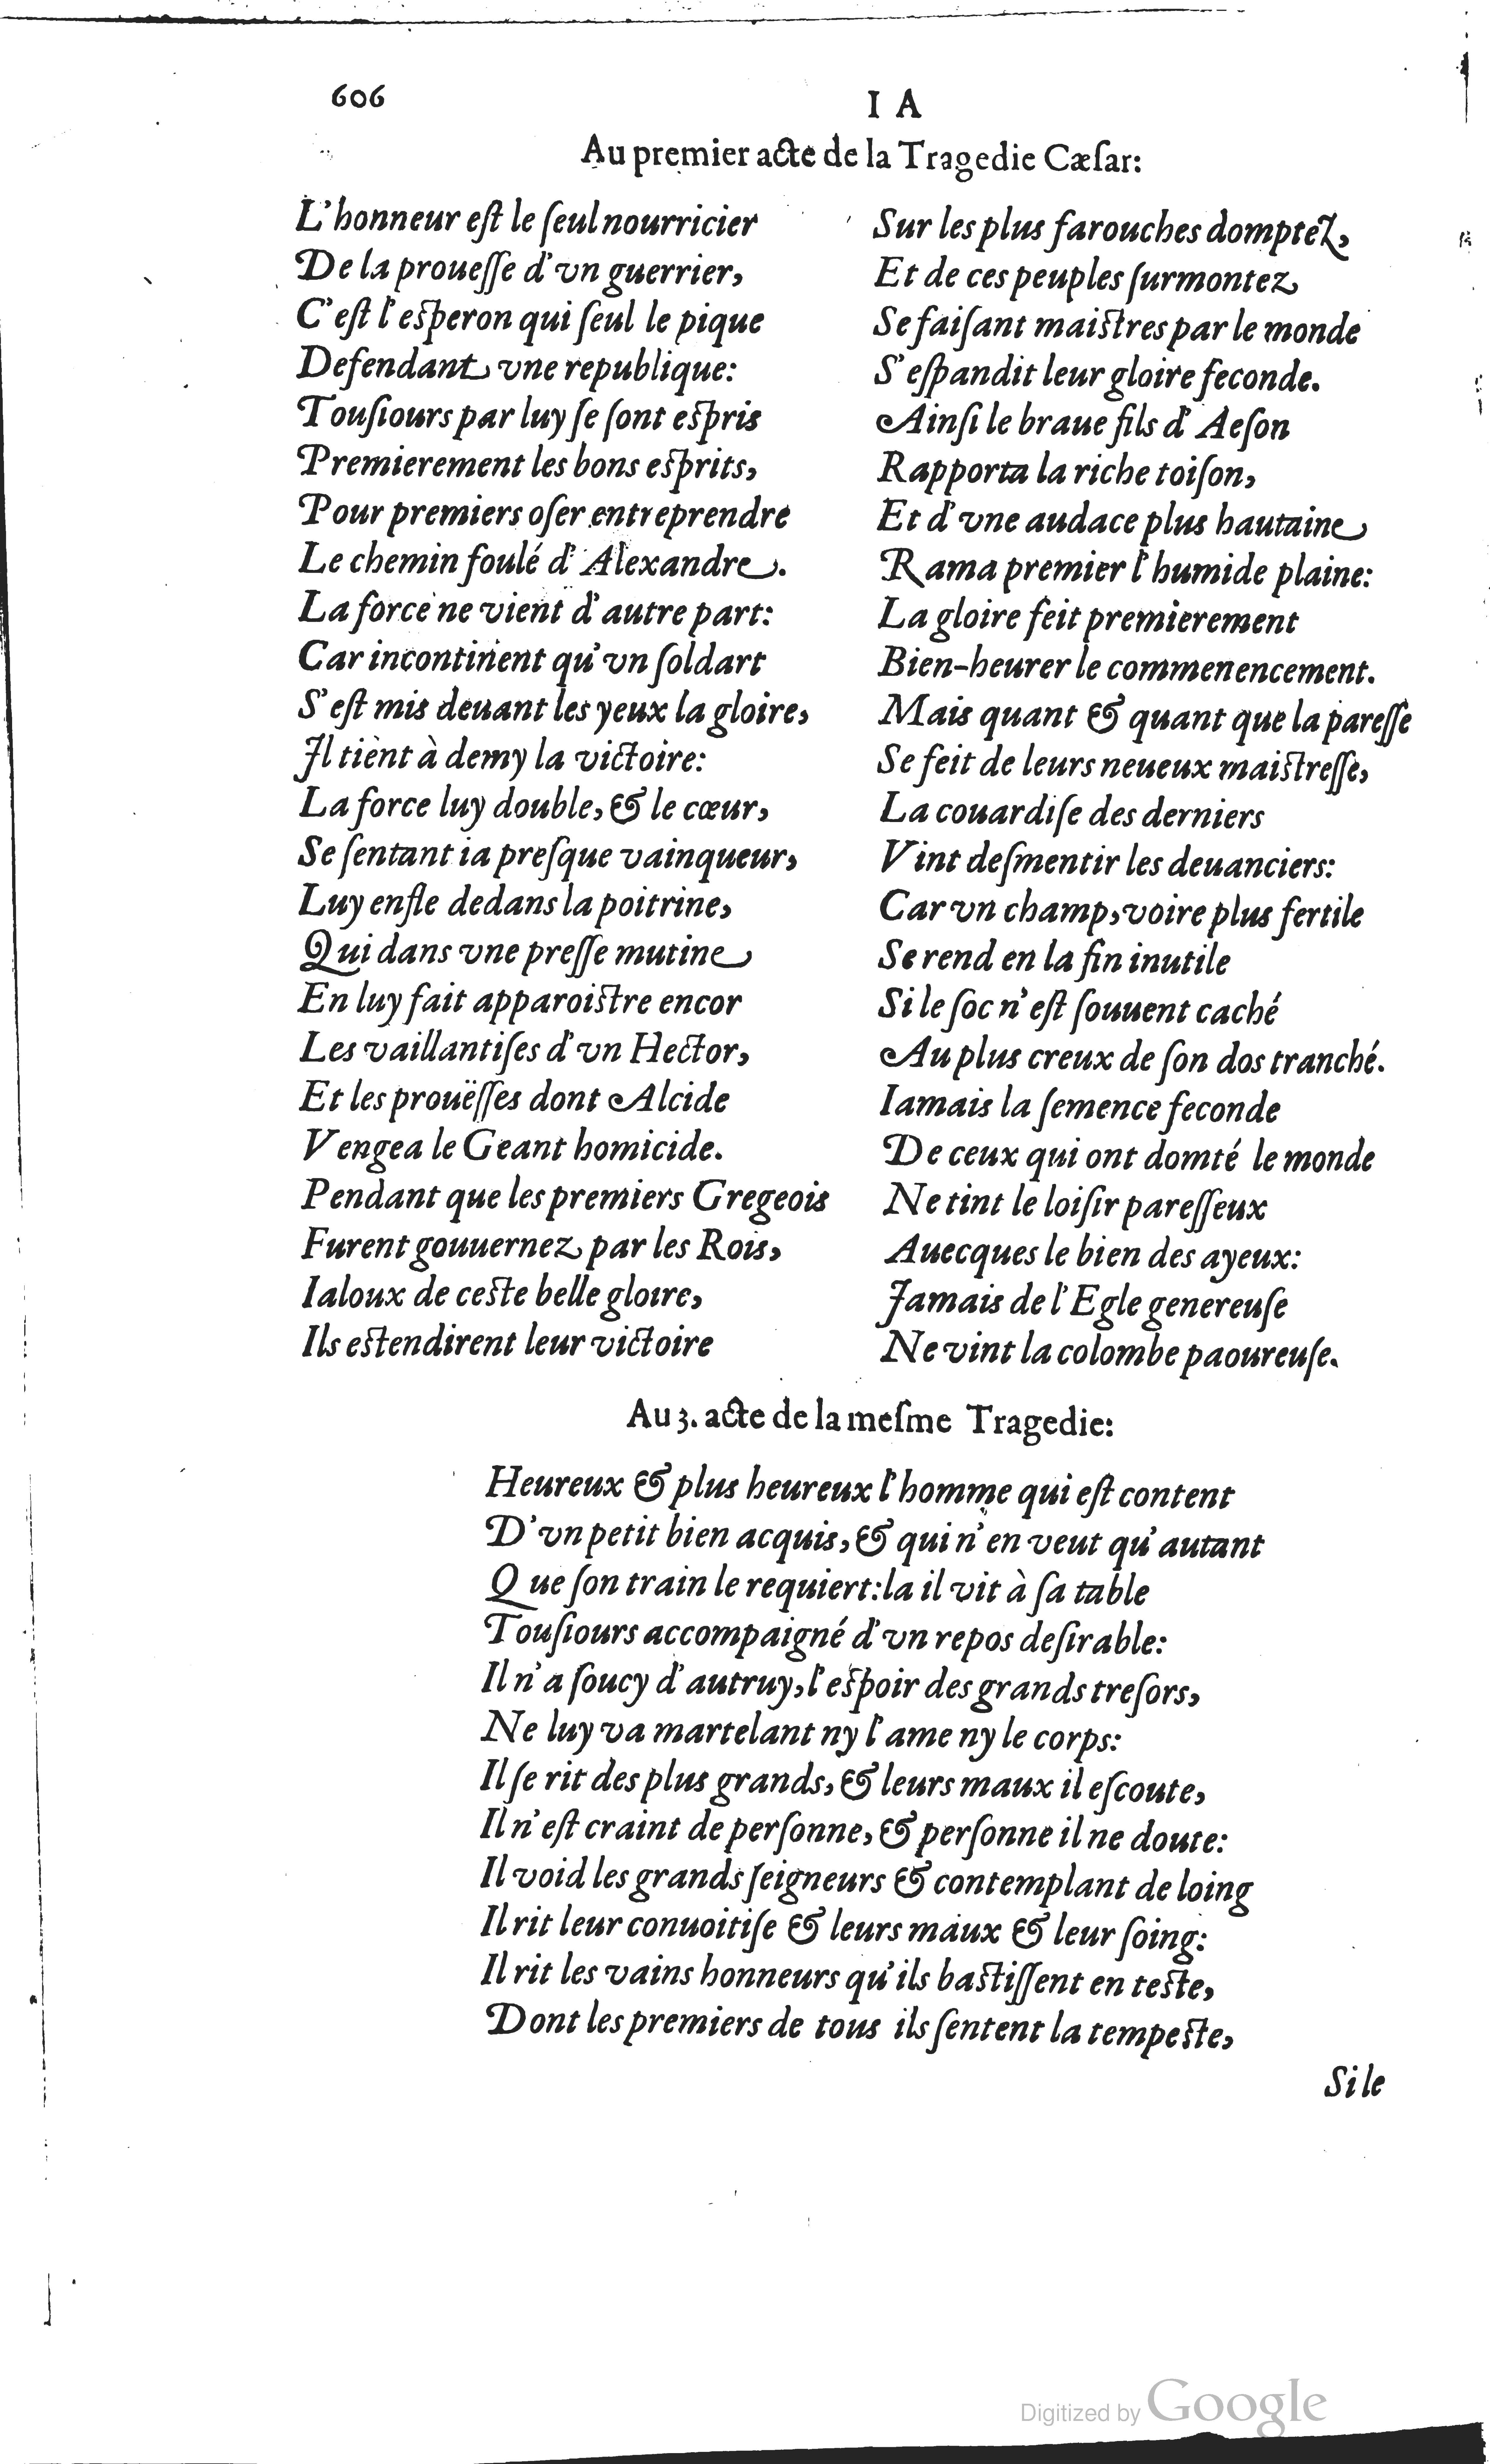 606
I A
Au premier acte de la Tragedie Cæſar:
L'honneur eſt le ſeul nourricier
De la proueſſe d'vn guerrier,
C'eſt l'eſperon qui ſeul le pique
Defendant vne republique:
Touſiours par luy ſe ſont eſpris
Premierement les bons eſprits,
Pour premiers oſer entreprendre
Le chemin foulé d'Alexandre.
La force ne vient d'autre part:
Car incontinent qu'vn ſoldart
S'eſt mis deuant les yeux la gloire,
Il tient à demy la victoire:
La force luy double, & le cœur,
Se ſentant ia preſque vainqueur,
Luy enfle dedans la poitrine,
Qui dans vne preſſe mutine
En luy fait apparoiſtre encor
Les vaillantiſes d'vn Hector,
Et les prouëſſes dont Alcide
Vengea le Geant homicide.
Pendant que les premiers Gregeois
Furent gouuernez par les Rois,
Ialoux de ceſte belle gloire,
Ils eſtendirent leur victoire
Sur les plus farouches domptez,
Et de ces peuples ſurmontez
Se faiſant maiſtres par le monde
S'eſpandit leur gloire feconde.
Ainſi le braue fils d'Aeſon
Rapporta la riche toiſon,
Et d'vne audace plus hautaine
Rama premier l'humide plaine:
La gloire feit premierement
Bien-heurer le commenencement.
Mais quant & quant que la pareſſe
Se feit de leurs neueux maiſtreſſe,
La couardiſe des derniers
Vint deſmentir les deuanciers:
Car vn champ, voire plus fertile
Se rend en la fin inutile
Si le ſoc n'eſt ſouuent caché
Au plus creux de ſon dos tranché.
Iamais la ſemence feconde
De ceux qui ont domté le monde
Ne tint le loiſir pareſſeux
Auecques le bien des ayeux:
Iamais de l'Egle genereuſe
Ne vint la colombe paoureuſe.
Au 3. acte de la meſme Tragedie:
Heureux & plus heureux l'homme qui eſt content
D'vn petit bien acquis, & qui n'en veut qu'autant
Que ſon train le requiert: la il vit à ſa table
Touſiours accompaigné d'vn repos deſirable:
Il n'a ſoucy d'autruy, l'eſpoir des grands treſors,
Ne luy va martelant ny l'ame ny le corps:
Il ſe rit des plus grands, & leurs maux il eſcoute,
Il n'eſt craint de perſonne, & perſonne il ne doute:
Il void les grands ſeigneurs & contemplant de loing
Il rit leur conuoitiſe & leurs maux & leur ſoing:
Il rit les vains honneurs qu'ils baſtiſſent en teſte,
Dont les premiers de tous ils ſentent la tempeſte,
Si le
Digitized by Google